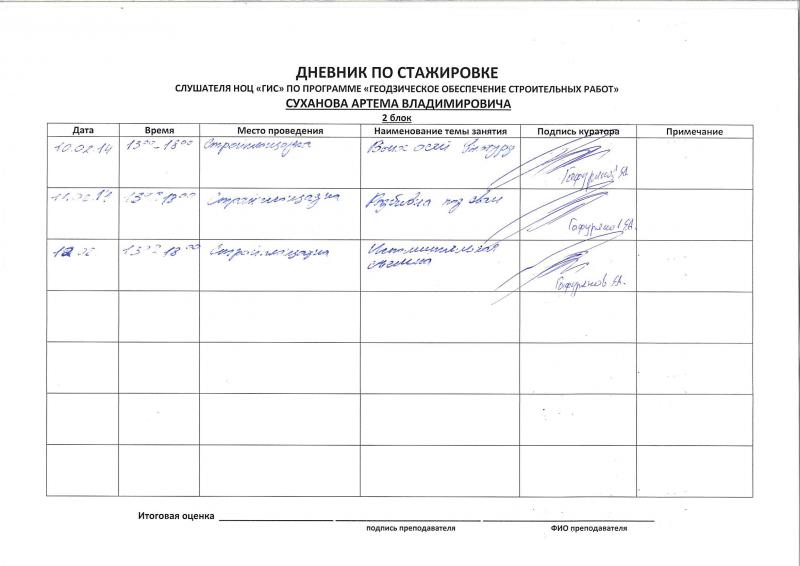 ДНЕВНИК ПО СТАЖИРОВКЕ
СЛУШАТЕЛЯ НОЦ «ГИС» ПО ПРОГРАММЕ «ГЕОДЗИЧЕСКОЕ ОБЕСПЕЧЕНИЕ СТРОИТЕЛЬНЫХ РАБОТ»
СУХАНОВА АРТЕМА ВЛАДИМИРОВИЧА
2 блок
Дата Время Место проведения Наименование темы занятия Подпись куратора Примечание
10.02.14 13⁰⁰-18⁰⁰ Стройплощадка осей
Гафурянов
11.02.14 Стройплощадка Разбивка под сваи
Гафурянов
12 02 13⁰⁰-18⁰⁰ Стройплощадка Исполнительная
съемка Гафурянов
Итоговая оценка
подпись преподавателя ФИО преподавателя